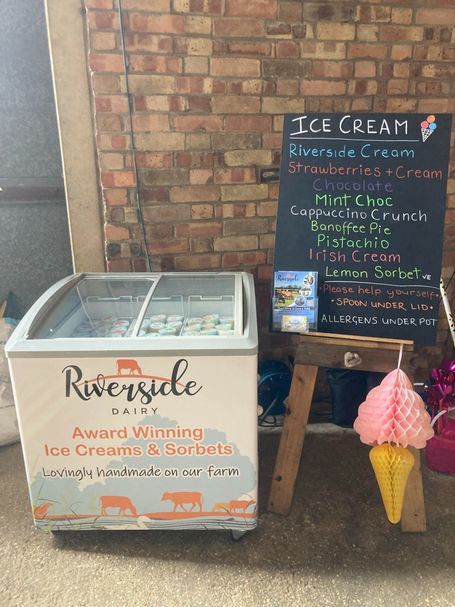 ICE CREAM
Riverside Cream
Strawberries + Cream
Chocolate
Mint Choc
Cappuccino Crunch
Banoffee Pie
Pistachio
Irish Cream
Lemon Sorbet VE
• Please help yourself •
• SPOON UNDER LID •
ALLERGENS UNDER POT
Riverside
Riverside
DAIRY
Award Winning
Ice Creams & Sorbets
Lovingly handmade on our farm